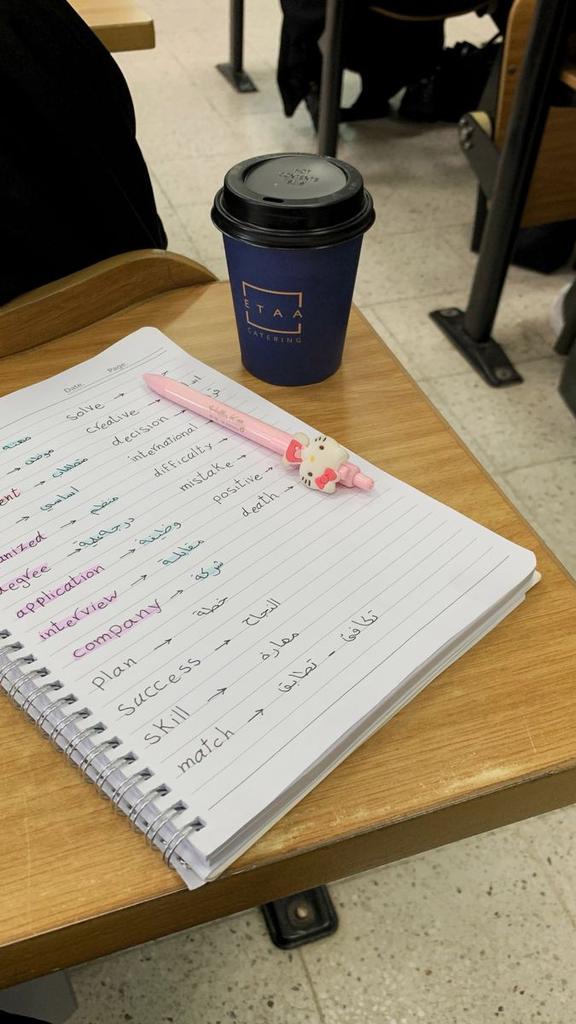 HOT
CONTENTS
ETAA
CATERING
Date
Page
solve →
creative →
decision →
international
difficulty →
mistake →
positive →
death →
مهنة
موظف
متطلبات
→ اساسي
anized → منظم
degree → درجة علمية
application → وظيفة
interview → مقابلة
company → شركة
plan → خطة
success → النجاح
skill → مهارة
match → تطابق - تكافئ